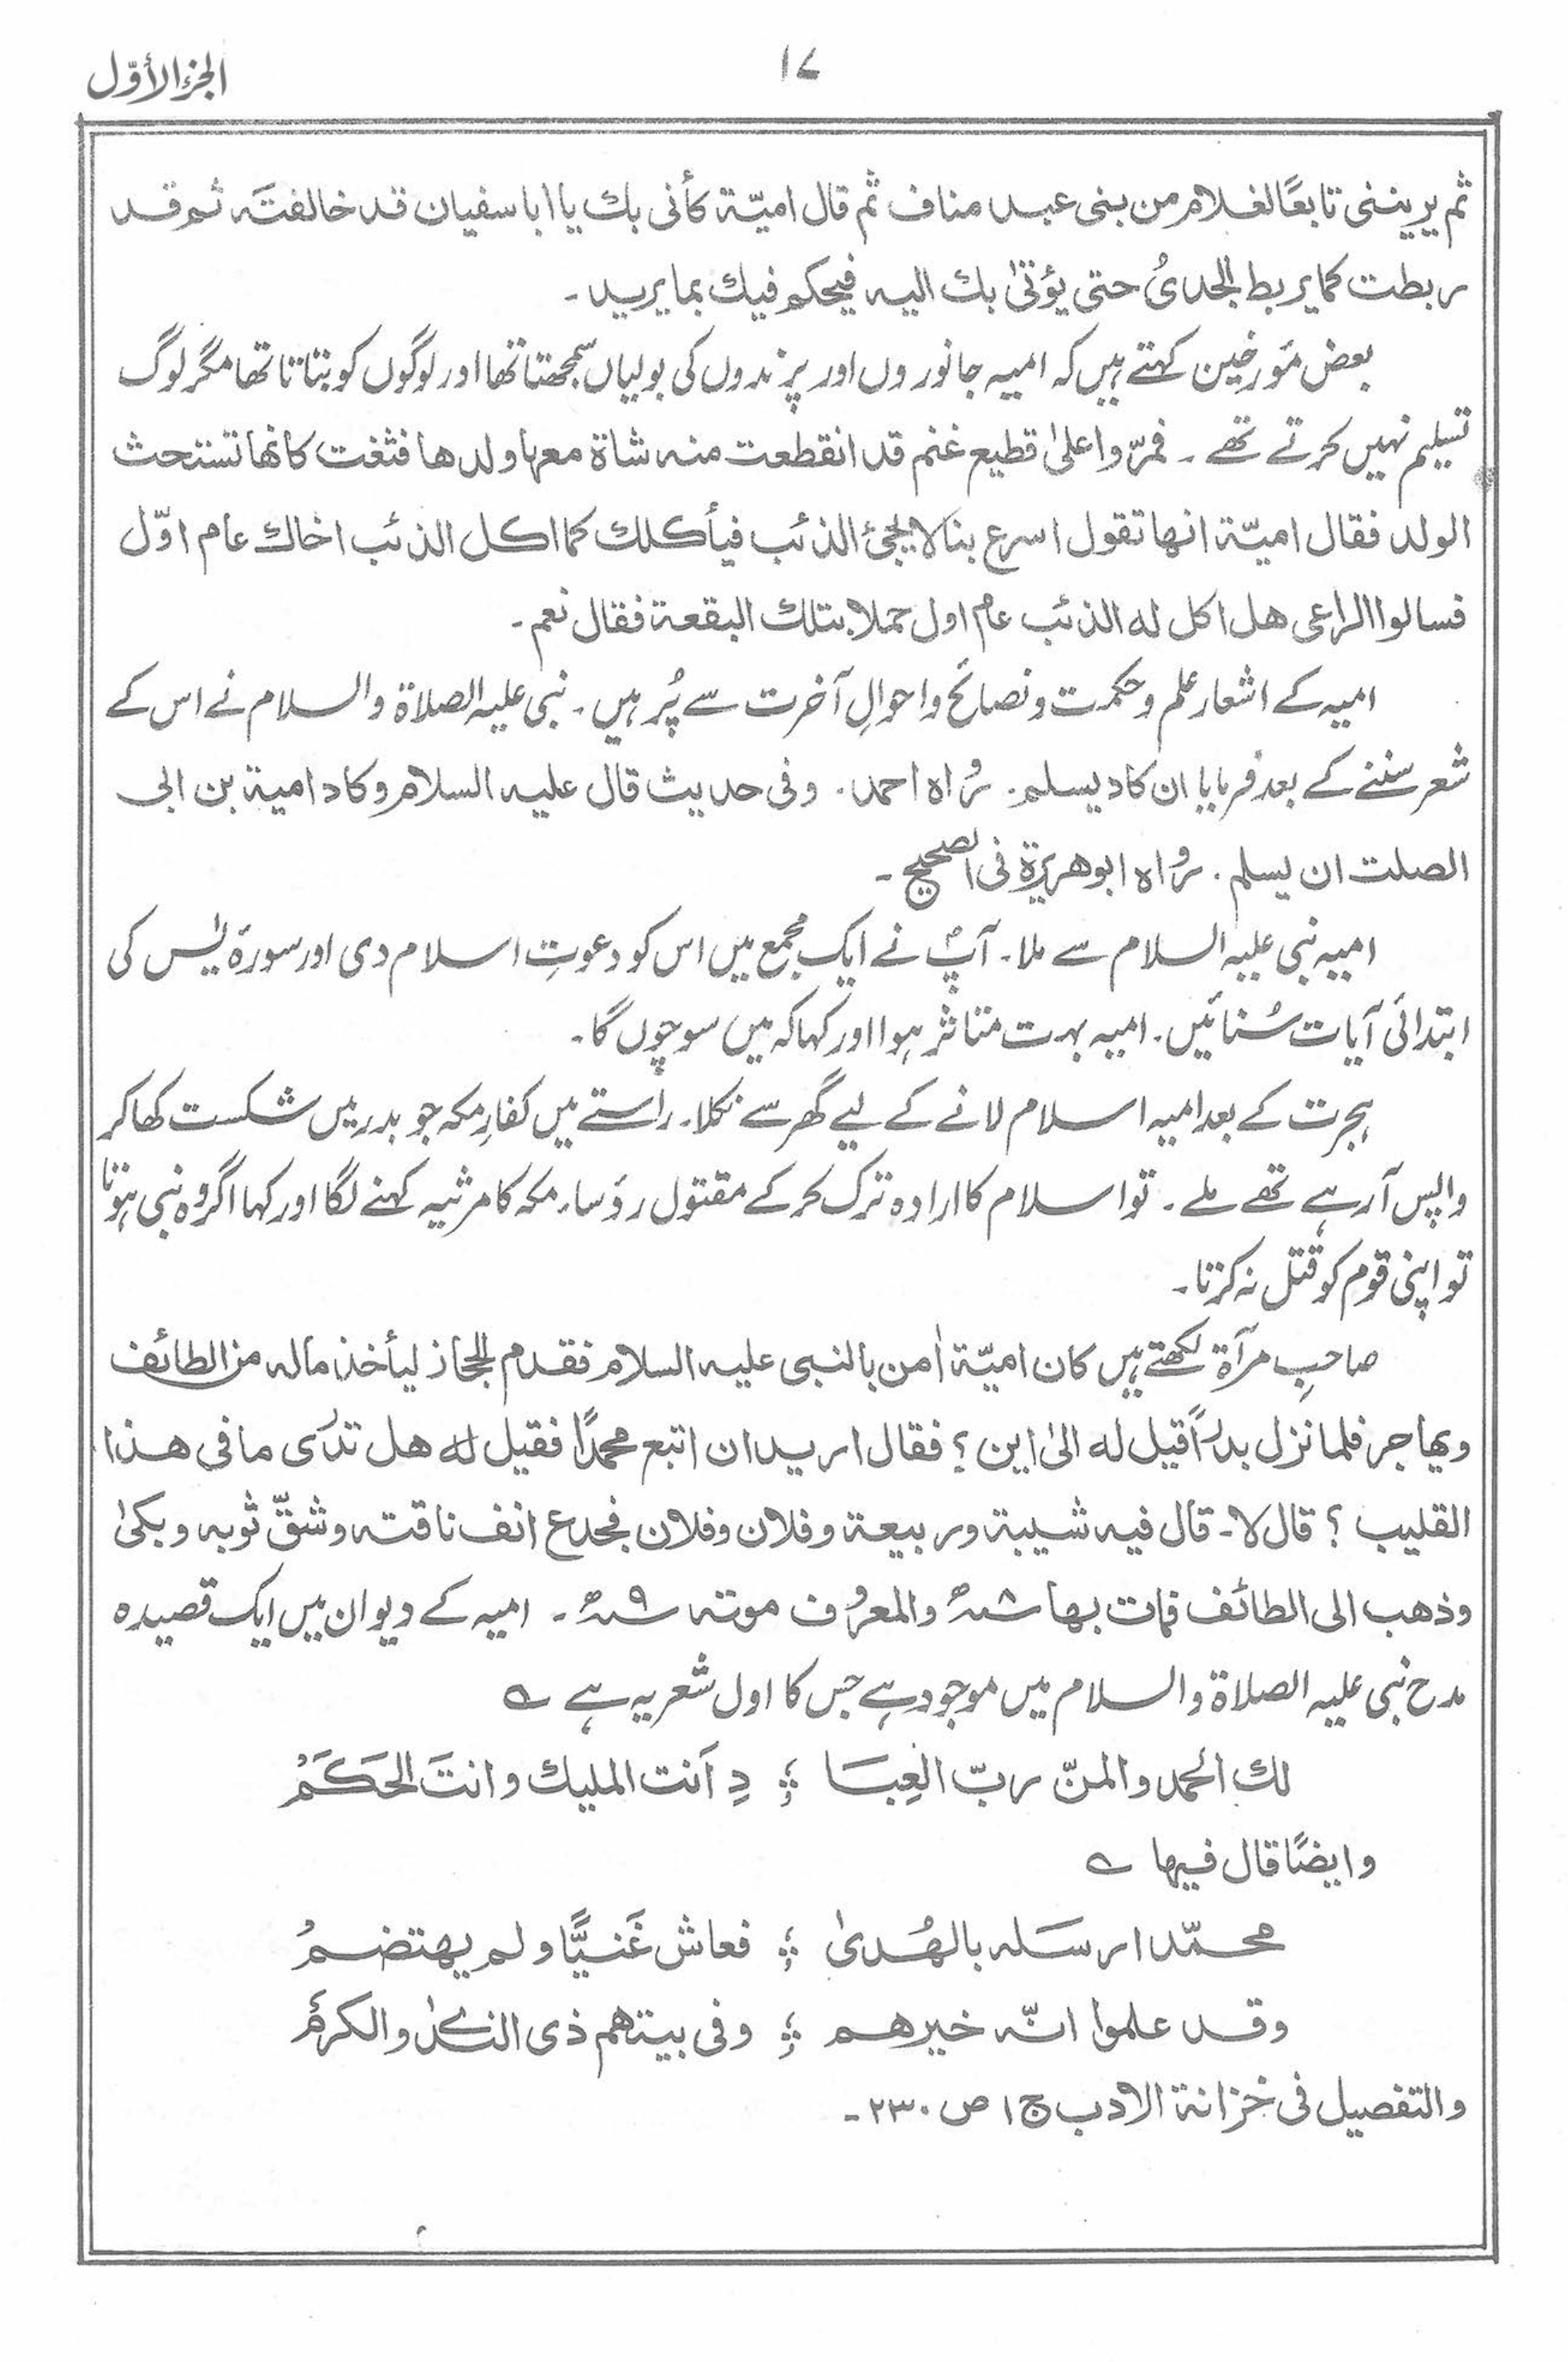 الجزء الأوّل
۱۷
ثم يرينني تابعًا لغلام من بنى عبد مناف ثم قال اميّة كأنى بك يا ابا سفيان قد خالفتَه ثم قد
ربطت كما يربط الجدىُ حتى يؤتىٰ بك اليه فيحكم فيك بما يريد۔
بعض مؤرخین کہتے ہیں کہ امیہ جانوروں اور پرندوں کی بولیاں سمجھتا تھا اور لوگوں کو بتاتا تھا مگر لوگ
تسلیم نہیں کرتے تھے ۔ فمرّوا علىٰ قطيع غنم قد انقطعت منه شاة معها ولدها فثغت كانها تستحث
الولد فقال اميّة انها تقول اسرع بنا لا يجئ الذئب فيأكلك كما اكل الذئب اخاك عام اوّل
فسالوا الراعى هل اكل له الذئب عام اول حملا بتلك البقعة فقال نعم۔
امیہ کے اشعار علم و حکمت و نصائح و احوالِ آخرت سے پُر ہیں۔ نبی علیہ الصلاۃ والسلام نے اس کے
شعر سننے کے بعد فرمایا ان كاد ليسلم۔ رواه احمد۔ وفى حديث قال عليه السلام وكاد امية بن ابى
الصلت ان يسلم۔ رواه ابوهريرة فى الصحيح۔
امیہ نبی علیہ السلام سے ملا۔ آپؐ نے ایک مجمع میں اس کو دعوتِ اسلام دی اور سورۃ یٰس کی
ابتدائی آیات سُنائیں۔ امیہ بہت متاثر ہوا اور کہا کہ میں سوچوں گا۔
ہجرت کے بعد امیہ اسلام لانے کے لیے گھر سے نکلا۔ راستے میں کفارِ مکہ جو بدر میں شکست کھا کر
واپس آرہے تھے ملے۔ تو اسلام کا ارادہ ترک کرکے مقتول رؤساء مکہ کا مرثیہ کہنے لگا اور کہا اگر وہ نبی ہوتا
تو اپنی قوم کو قتل نہ کرتا۔
صاحبِ مرآۃ لکھتے ہیں كان اميّة اٰمن بالنبى عليه السلام فقدم الحجاز ليأخذ ماله من الطائف
ويهاجر فلما نزل بدرًا قيل له الىٰ اين ؟ فقال اريد ان اتبع محمدًا فقيل له هل تدرى ما فى هذا
القليب ؟ قال لا۔ قال فيه شيبة وربيعة وفلان وفلان فجدع انف ناقته وشقّ ثوبه وبكىٰ
وذهب الى الطائف فمات بها سنه ۸ھ والمعروف موته سنه ۹ھ۔ امیہ کے دیوان میں ایک قصیدہ
مدح نبی علیہ الصلاۃ والسلام میں موجود ہے جس کا اول شعر یہ ہے ؎
لك الحمد والمنّ ربّ العِبَا ؛ دِ اَنت المليك وانتَ الحَكَمْ
وايضًا قال فيها ؎
محمّد ارسَله بالهُدىٰ ؛ فعاش غَنيًّا ولم يهتضمُ
وقد علموا انّه خيرهم ؛ وفى بيتهم ذى الندىٰ والكرم
والتفصيل فى خزانة الادب ج ۱ ص ۲۳۰۔